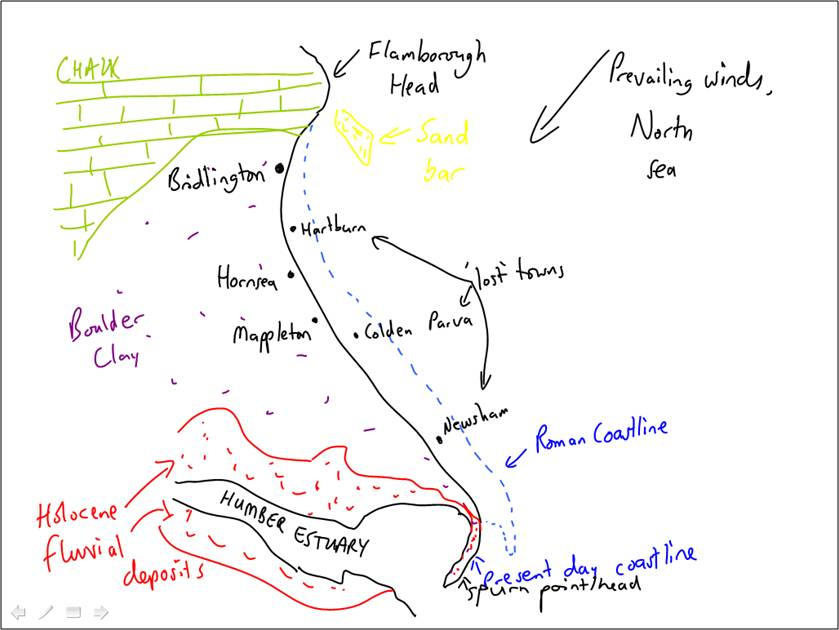 CHALK
Flamborough
Head
Prevailing winds,
North
sea
Sand
bar
Bridlington
Hartburn
Hornsea
'lost' towns
Boulder
Clay
Mappleton
Colden Parva
Newsham
Roman Coastline
Holocene
fluvial
deposits
HUMBER ESTUARY
Present day coastline
spurn point/head